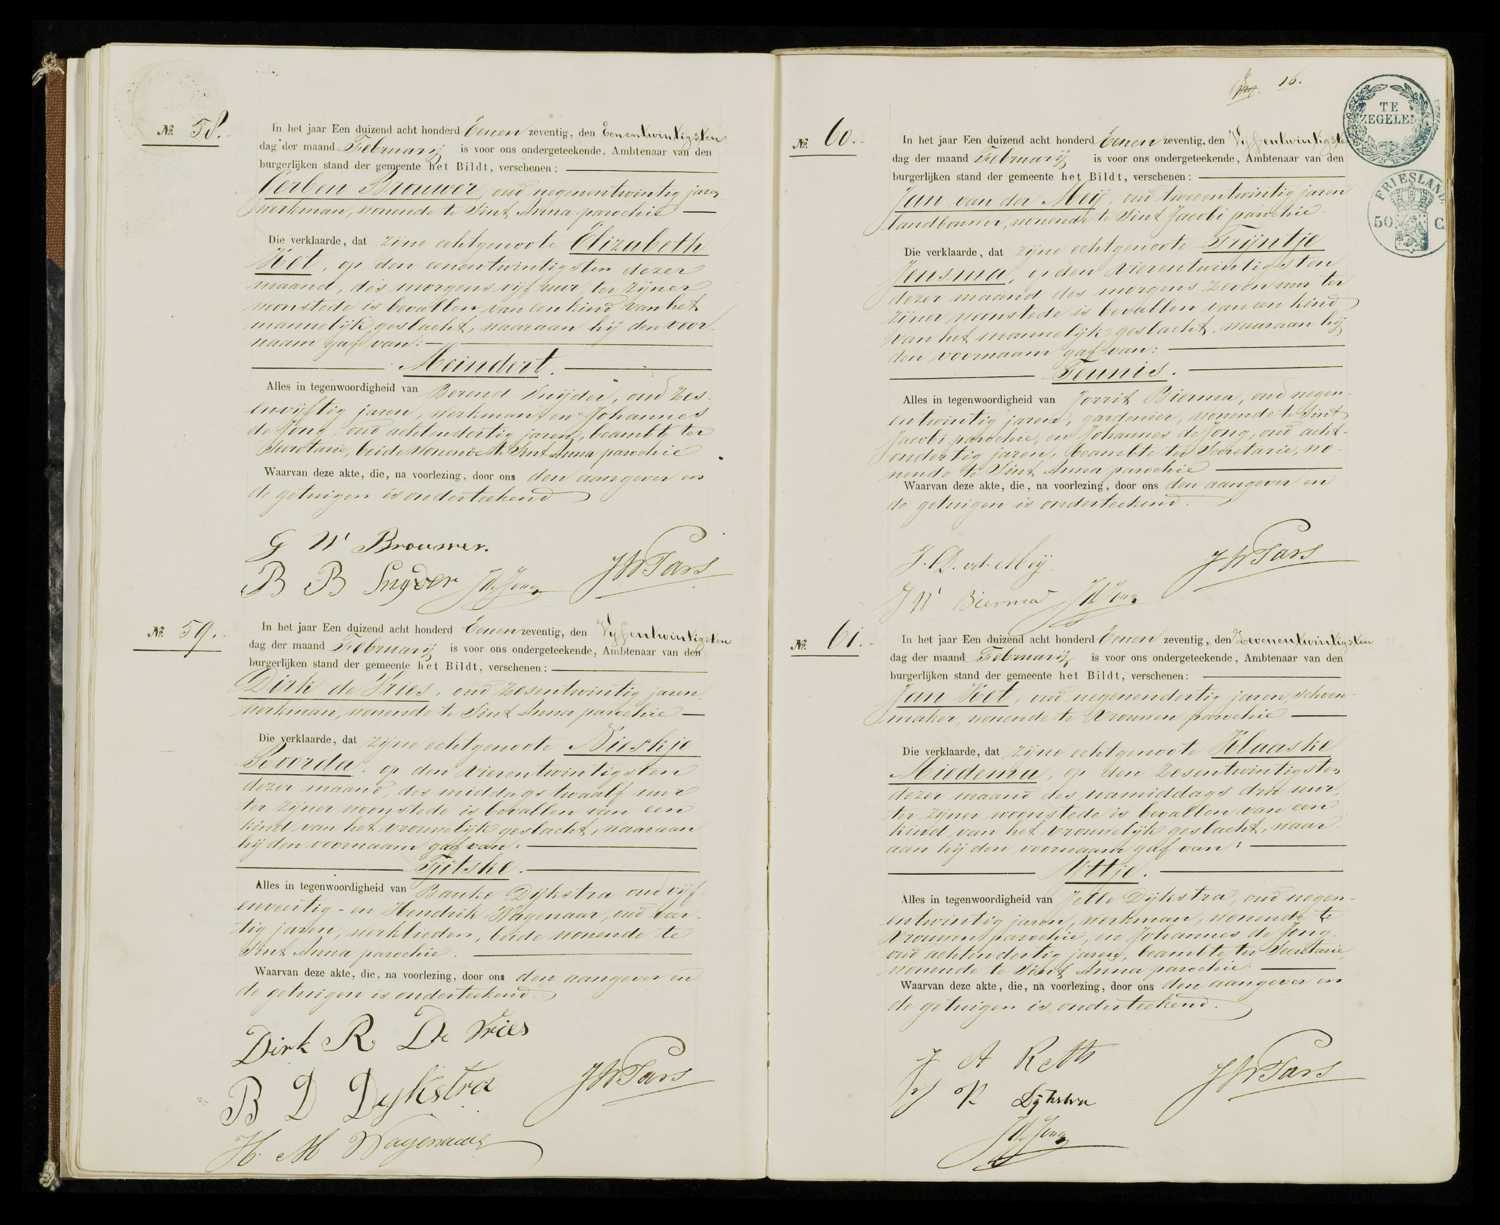 № 58.
In het jaar Een duizend acht honderd Eenen zeventig, den Eenentwintigsten
dag der maand Februarij is voor ons ondergeteekende, Ambtenaar van den
burgerlijken stand der gemeente het Bildt, verschenen:
Gerben Brouwer, oud negenentwintig jaren
werkman, wonende te Sint Anna parochie
Die verklaarde, dat zijne echtgenoote Elizabeth
Voet, op den eenentwintigsten dezer
maand, des morgens vijf uur, ter zijner
woonstede is bevallen van een kind van het
mannelijk geslacht, waaraan hij den voor-
naam gaf van:
Meindert.
Alles in tegenwoordigheid van Berend Snijder, oud zes-
envijftig jaren, werkman en Johannes
de Jong oud achtendertig jaren, beambte ter
Secretarie, beide wonende te Sint Anna parochie
Waarvan deze akte, die, na voorlezing, door ons den aangever en
de getuigen is onderteekend
G W Brouwer.
B B Snyder JdeJong JWPars
№ 59.
In het jaar Een duizend acht honderd Eenen zeventig, den Vyfentwintigsten
dag der maand Februarij is voor ons ondergeteekende, Ambtenaar van den
burgerlijken stand der gemeente het Bildt, verschenen:
Dirk de Vries, oud zesentwintig jaren
werkman, wonende te Sint Anna parochie
Die verklaarde, dat zijne echtgenoote Nieskje
op den vierentwintigsten
dezer maand, des middags twaalf uur
ter zijner woonstede is bevallen van een
kind van het vrouwelijk geslacht, waaraan
hij den voornaam gaf van:
Tjitske.
Alles in tegenwoordigheid van Bauke Dijkstra oud vijf
enveertig en Hendrik Wagenaar, oud veer-
tig jaren, werklieden, beide wonende te
Sint Anna parochie.
Waarvan deze akte, die, na voorlezing, door ons den aangever en
de getuigen is onderteekend.
Dirk R De Vries
B D Dykstra JWPars
H. M Wagenaar
16.
TE ZEGELEN
FRIESLAND.
50 C.
№ 60.
In het jaar Een duizend acht honderd Eenen zeventig, den Vyfentwintigsten
dag der maand Februarij is voor ons ondergeteekende, Ambtenaar van den
burgerlijken stand der gemeente het Bildt, verschenen:
Jan van der Meij, oud tweeentwintig jaren
landbouwer, wonende te Sint Jacobi parochie
Die verklaarde, dat zijne echtgenoote Trijntje
Jensma, op den vierentwintigsten
dezer maand des morgens zeven uur ter
zijner woonstede is bevallen van een kind
van het mannelijk geslacht, waaraan hij
den voornaam gaf van:
Teunis.
Alles in tegenwoordigheid van Jorrit Bierma, oud negen-
entwintig jaren, gardenier, wonende te Sint
Jacobi parochie, en Johannes de Jong, oud acht-
endertig jaren, beambte ter Secretarie, wo-
nende te Sint Anna parochie
Waarvan deze akte, die, na voorlezing, door ons den aangever en
de getuigen is onderteekend.
J. D. vd. Mij JWPars
J W Bierma JdeJong
№ 61.
In het jaar Een duizend acht honderd Eenen zeventig, den Zevenentwintigsten
dag der maand Februarij is voor ons ondergeteekende, Ambtenaar van den
burgerlijken stand der gemeente het Bildt, verschenen:
Jan Voet, oud negenendertig jaren, schoen-
maker, wonende te Vrouwen parochie
Die verklaarde, dat zijne echtgenoote Klaaske
Miedema, op den zesentwintigsten
dezer maand des namiddags drie uur,
ter zijner woonstede is bevallen van een
kind van het vrouwelijk geslacht, waar
aan hij den voornaam gaf van:
Alles in tegenwoordigheid van Jelle Dijkstra, oud negen-
entwintig jaren, werkman, wonende te
Vrouwen parochie, en Johannes de Jong
oud achtendertig jaren, beambte ter Secretarie
wonende te Sint Anna parochie
Waarvan deze akte, die, na voorlezing, door ons den aangever en
de getuigen is onderteekend.
J A JWPars
R Dijkstra
JdeJong